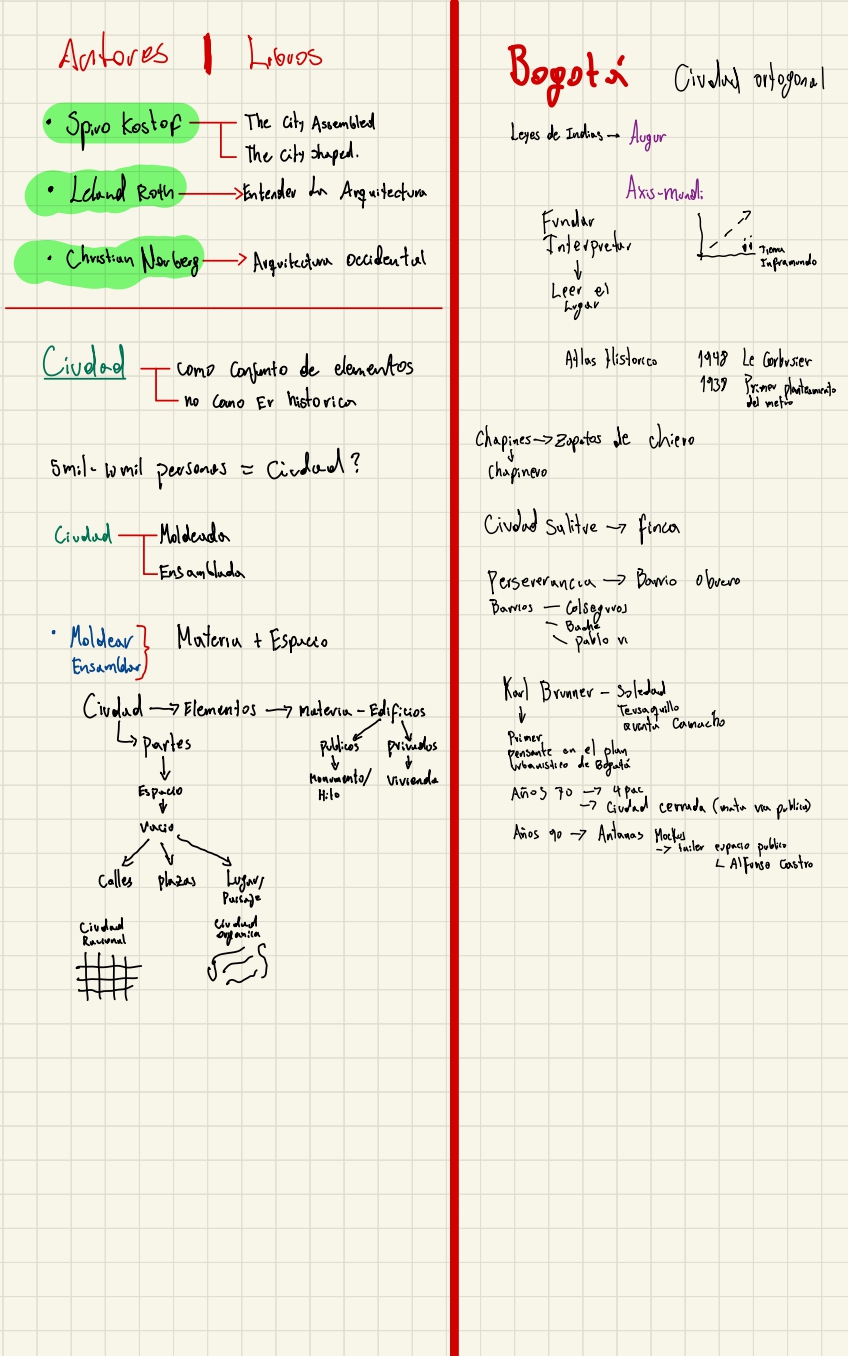 Autores | Libros
• Spiro Kostof
The City Assembled
The City shaped.
• Leland Roth → Entender La Arquitectura
• Christian Norberg → Arquitectura Occidental
Ciudad
como conjunto de elementos
no como Er historica
5mil - 10 mil personas = Ciudad?
Ciudad
Moldeada
Ensamblada
• Moldear
Ensamblar
Materia + Espacio
Ciudad → Elementos → Materia - Edificios
Partes
publicos
privados
Espacio
Monumento/
Hito
Vivienda
Vacio
Calles
plazas
Lugar/
Paisaje
Ciudad
Racional
Ciudad
organica
Bogotá
Ciudad ortogonal
Leyes de Indias → Augur
Axis-mundi
Fundar
Interpretar
Leer el
Lugar
Tierra
Inframundo
Atlas Historico
1948 Le Corbusier
1939 Primer planteamento
del metro
Chapines → Zapatos de
Chapinero
Ciudad Salitre → finca
Perseverancia → Barrio obrero
Barrios — Colseguros
pablo vi
Karl Brunner - Soledad
Teusaquillo
Camacho
Primer
pensante en el plan
Urbanistico de Bogotá
Años 70 →
→ Ciudad cerrada (mata via publica)
Años 90 → Antanas Mockus
→ taller espacio publico
Alfonso Castro